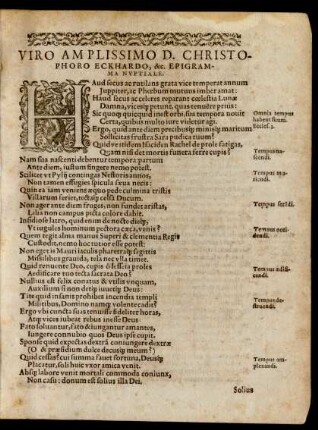 VIRO AMPLISSIMO D. CHRISTO-
PHORO ECKHARDO, &c. EPIGRAM-
MA NVPTIALE.
HAud secus ac rutilans grata vice temperat annum
Juppiter, ac Phœbum mutuus imber amat:
Haud secus ac celeres reparate Lunæ
Damna, vicesq́; petunt, quas tenuere prius:
Sic quoqꝫ quicquid inest orbi, sua tempora novit
Certa, quibus multo jure videtur agi.
Ergo, quid ante diem
Sollicitat frustra Sara pudica tuum?
Quid ve itidem Isaciden Rachel de prole fatigas,
Quam nisi det mortis funera ferre cupis?
Nam sua nascenti debentur tempora partum
Ante diem, justum fingere nemo potest.
Scilicet vt Pylij contingas Nestoris annos,
Non tamen effugies spicula sæva neris:
Quin ea jam veniens æquo pede culmina tristis
Villarum feriet, tecta celsa Ducum.
Non ager ante diem fruges, non fundet aristas,
Lilia non campus picta colore dabit.
Insidiose latro, quidenim de nocte
Vt jugules hominum pectora cæca, venis?
Quem tegit alma manus Superi & clementia Regis
Custodit, nemo hoc tutior esse potest:
Non eget is Mauri jaculis pharetraq́; sagittis
Missilibus gravida, tela nec vlla timet.
Quid renuente Deo,
Aedificare tuo tecta sacrata Deo?
Nullius est felix conatus & vtilis vnquam,
Auxilium si non detq́; Deus.
Tite quid insanis probus incendia templi
Militibus, Domino namq́; volente cadit?
Ergo vbi cuncta suas tenuisse fideliter horas,
Atq́; vices jubeat rebus inesse Deus
Fato soluantur, fato & junganturamantes,
Iungere connubio quos Deus ipse cupit.
Sponse quid expectas dexterâ conjungere dextræ
(O & præsidium dulce decusq́; meum?)
Quid cessas? cui summa favet fortuna, Deusq́;
Placatur, soli huic vxor amica venit.
Absq́; labore venit mortali commoda conjunx,
Non casu: donum est solius illa Dei.
Solius
Omnia tempus
habent suum.
Tempus na-
scendi.
Tempus mo-
riendi.
Tempus serendi.
Tempus occi-
dendi.
Tempus ædifi-
candi.
Tempus de-
struendi.
Tempus am-
plexandi.